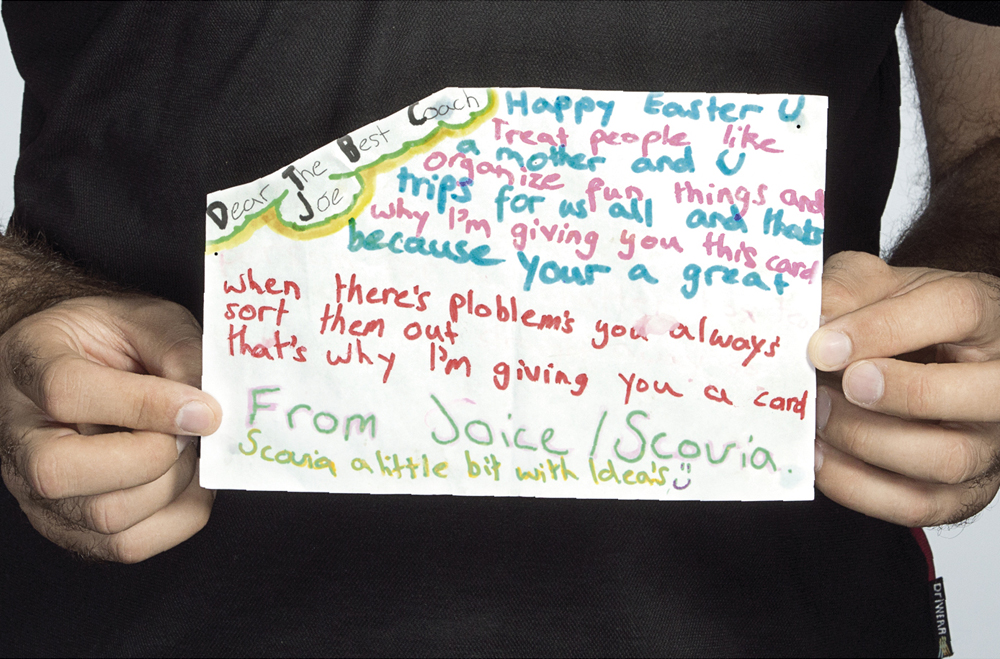 Dear The Best Coach
Joe
Happy Easter U
Treat people like
a mother and U
organize fun things and
trips for us all and thats
why I'm giving you this card
because your a great
when there's ploblem's you always
sort them out
that's why I'm giving you a card
From Joice / Scovia.
Scovia a little bit with Idea's
DriWEAR